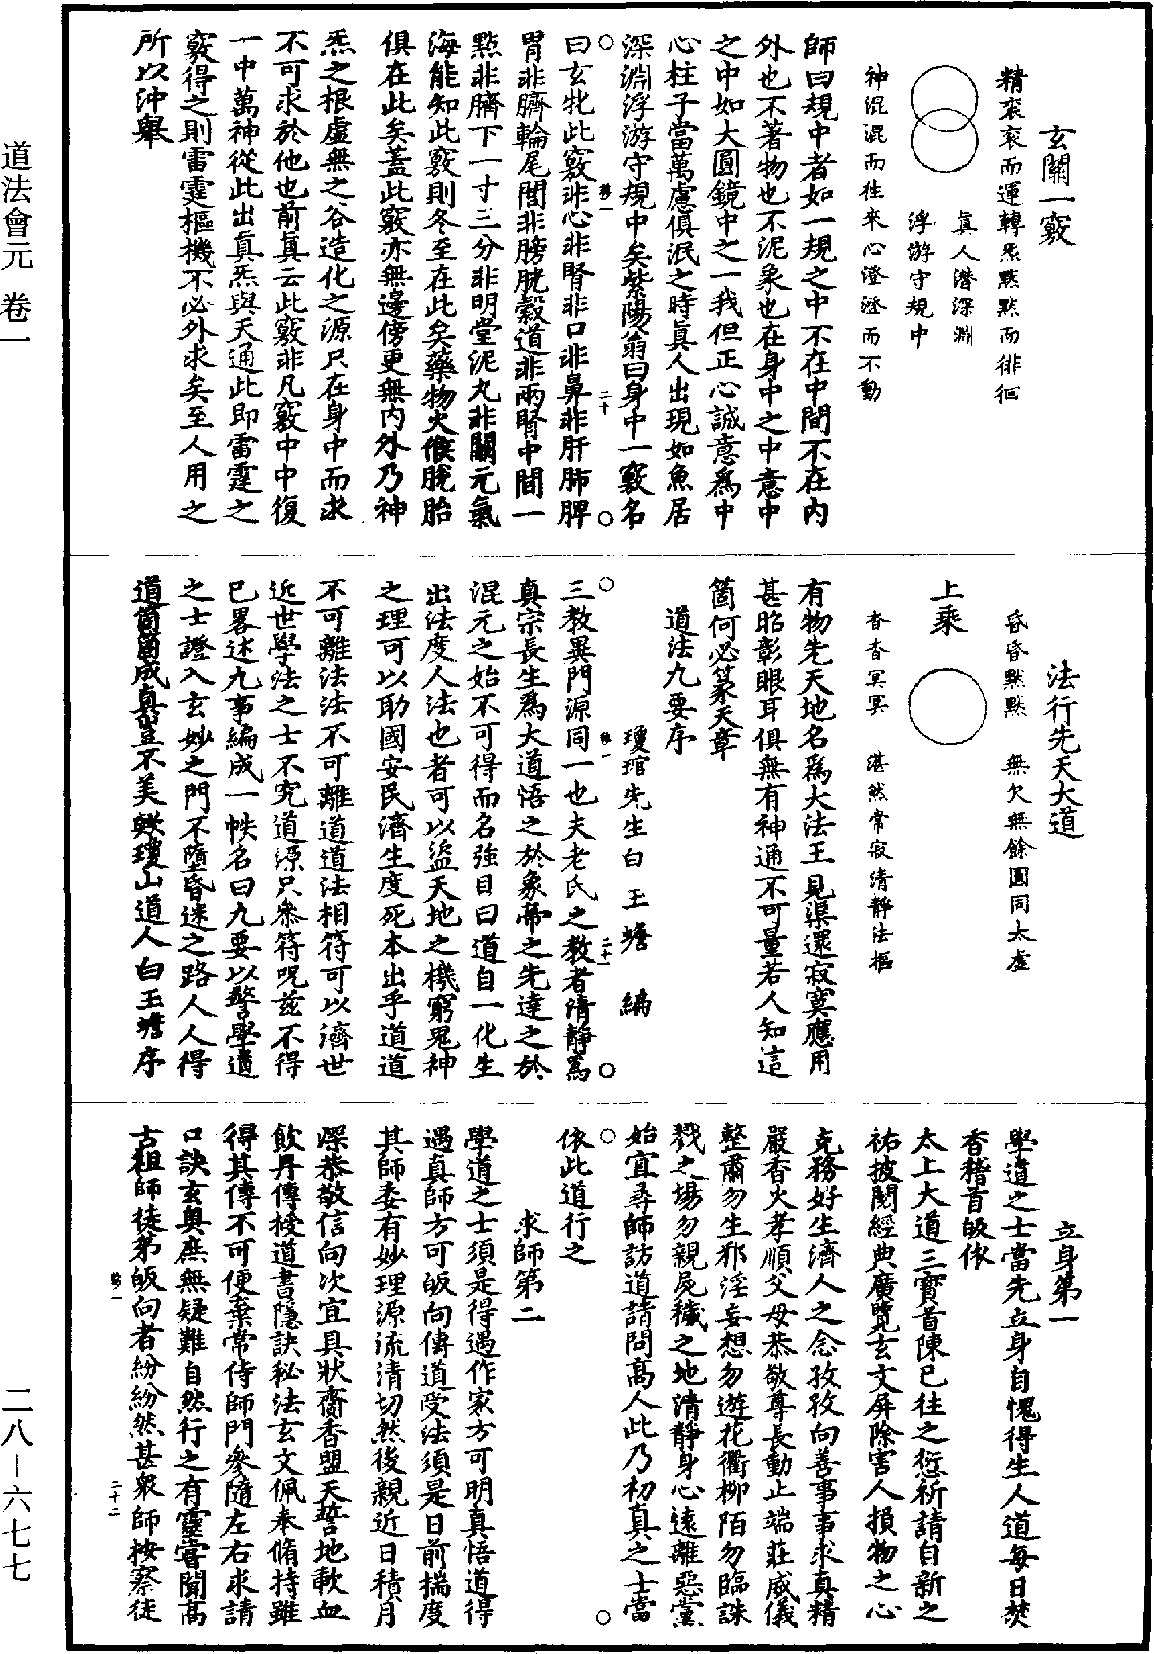 道法會元　卷一
二八－六七七
玄關一竅
精衮衮而運轉炁默默而徘徊
眞人潛深淵
浮游守規中
神混混而往來心澄澄而不動
師曰規中者如一規之中不在中間不在内
外也不著物也不泥象也在身中之中意中
之中如大圓鏡中之一我但正心誠意爲中
心柱子當萬慮俱泯之時眞人出現如魚居
深淵浮游守規中矣紫陽翁曰身中一竅名
曰玄牝此竅非心非腎非口非鼻非肝肺脾
胃非臍輪尾閭非膀胱穀道非兩腎中間一
點非臍下一寸三分非明堂泥丸非關元氣
海能知此竅則冬至在此矣藥物火候脫胎
俱在此矣蓋此竅亦無邊傍更無内外乃神
炁之根虛無之谷造化之源只在身中而求
不可求於他也前眞云此竅非凡竅中中復
一中萬神從此出眞炁與天通此即雷霆之
竅得之則雷霆樞機不必外求矣至人用之
所以沖舉
二十
法行先天大道
昏昏默默　無欠無餘圓同太虛
上乘
杳杳冥冥　湛然常寂清靜法樞
有物先天地名爲大法王見渠還寂寞應用
甚昭彰眼耳俱無有神通不可量若人知這
箇何必篆天章
道法九要序
瓊琯先生白玉蟾　編
三教異門源同一也夫老氏之教者清靜爲
真宗長生爲大道悟之於象帝之先達之於
混元之始不可得而名強目曰道自一化生
出法度人法也者可以盜天地之機窮鬼神
之理可以助國安民濟生度死本出乎道道
不可離法法不可離道道法相符可以濟世
近世學法之士不究道源只參符呪兹不得
已畧述九事編成一帙名曰九要以警學道
之士證入玄妙之門不墮昏迷之路人人得
道箇箇成真豈不美歟瓊山道人白玉蟾序
二十一
立身第一
學道之士當先立身自愧得生人道每日焚
香稽首皈依
太上大道三寶首陳已往之愆祈請自新之
祐披閱經典廣覽玄文屏除害人損物之心
克務好生濟人之念孜孜向善事事求真精
嚴香火孝順父母恭敬尊長動止端莊威儀
整肅勿生邪淫妄想勿遊花衢柳陌勿臨誅
戮之場勿親屍穢之地清靜身心遠離惡黨
始宜尋師訪道請問高人此乃初真之士當
依此道行之
求師第二
學道之士須是得遇作家方可明真悟道得
遇真師方可皈向傳道受法須是日前揣度
其師委有妙理源流清切然後親近日積月
深恭敬信向次宜具狀齎香盟天誓地歃血
飲丹傳授道書隱訣秘法玄文佩奉脩持雖
得其傳不可便棄常侍師門參隨左右求請
口訣玄奥庶無疑難自然行之有靈嘗聞高
古祖師徒弟皈向者紛紛然甚衆師按察徒
二十二